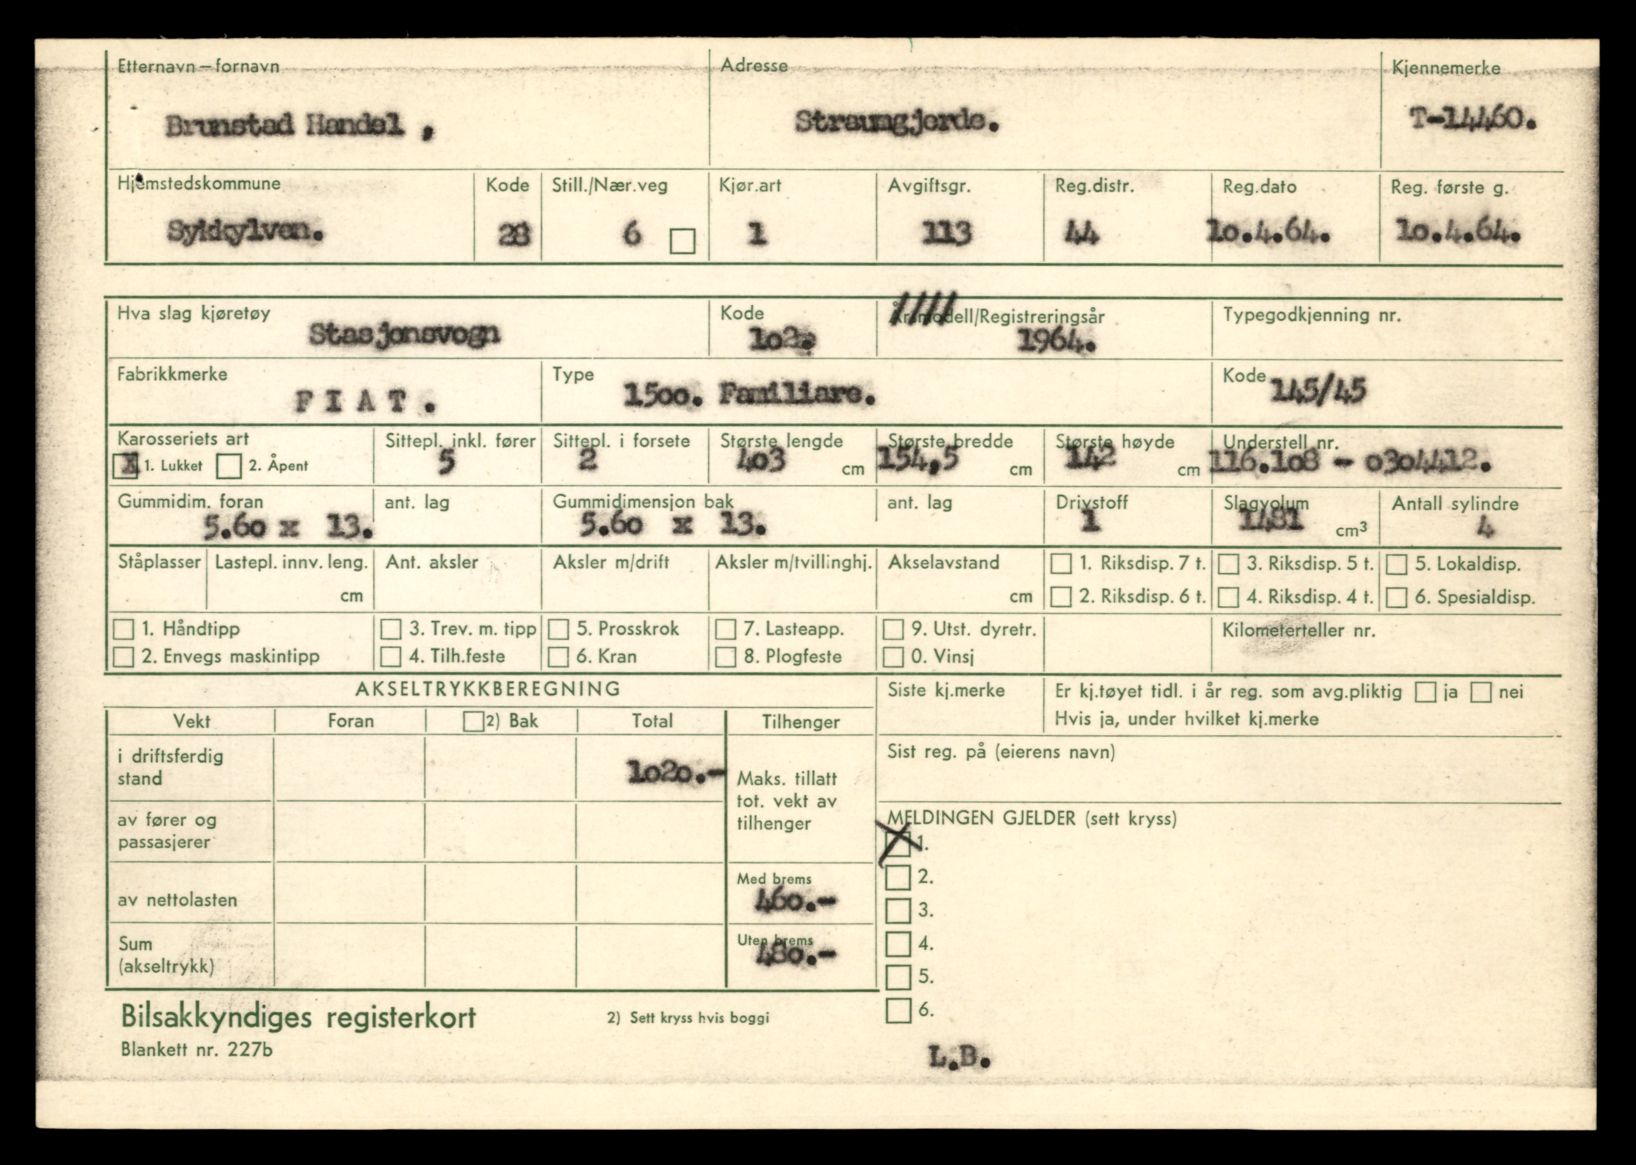 Etternavn—fornavn Adresse Kjennemerke
Brunstad Handel , Straumgjerde. T-14460.
Hjemstedskommune Kode Still./Nær.veg Kjør.art Avgiftsgr. Reg.distr. Reg.dato Reg. første g.
Sykkylven. 28 6 1 113 44 10.4.64. 10.4.64.
Hva slag kjøretøy Kode Årsmodell/Registreringsår Typegodkjenning nr.
Stasjonsvogn 1020 1964.
Fabrikkmerke Type Kode
F I A T . 1500. Familiare. 145/45
Karosseriets art Sittepl. inkl. fører Sittepl. i forsete Største lengde Største bredde Største høyde Understell nr.
X 1. Lukket 2. Åpent 5 2 403 cm 154,5 cm 142 cm 116.108 - 0304412.
Gummidim. foran ant. lag Gummidimensjon bak ant. lag Drivstoff Slagvolum Antall sylindre
5.60 x 13. 5.60 x 13. 1 1481 cm³ 4
Ståplasser Lastepl. innv. leng. Ant. aksler Aksler m/drift Aksler m/tvillinghj. Akselavstand 1. Riksdisp. 7 t. 3. Riksdisp. 5 t. 5. Lokaldisp.
cm cm 2. Riksdisp. 6 t. 4. Riksdisp. 4 t. 6. Spesialdisp.
1. Håndtipp 3. Trev. m. tipp 5. Prosskrok 7. Lasteapp. 9. Utst. dyretr. Kilometerteller nr.
2. Envegs maskintipp 4. Tilh.feste 6. Kran 8. Plogfeste 0. Vinsj
AKSELTRYKKBEREGNING Siste kj.merke Er kj.tøyet tidl. i år reg. som avg.pliktig ja nei
Hvis ja, under hvilket kj.merke
Vekt Foran 2) Bak Total Tilhenger
Sist reg. på (eierens navn)
i driftsferdig
stand 1020.-
Maks. tillatt
tot. vekt av
tilhenger
av fører og
passasjerer
MELDINGEN GJELDER (sett kryss)
X 1.
2.
3.
4.
5.
6.
av nettolasten
Med brems
460.-
Sum
(akseltrykk)
Uten brems
480.-
Bilsakkyndiges registerkort 2) Sett kryss hvis boggi
Blankett nr. 227b
L.B.